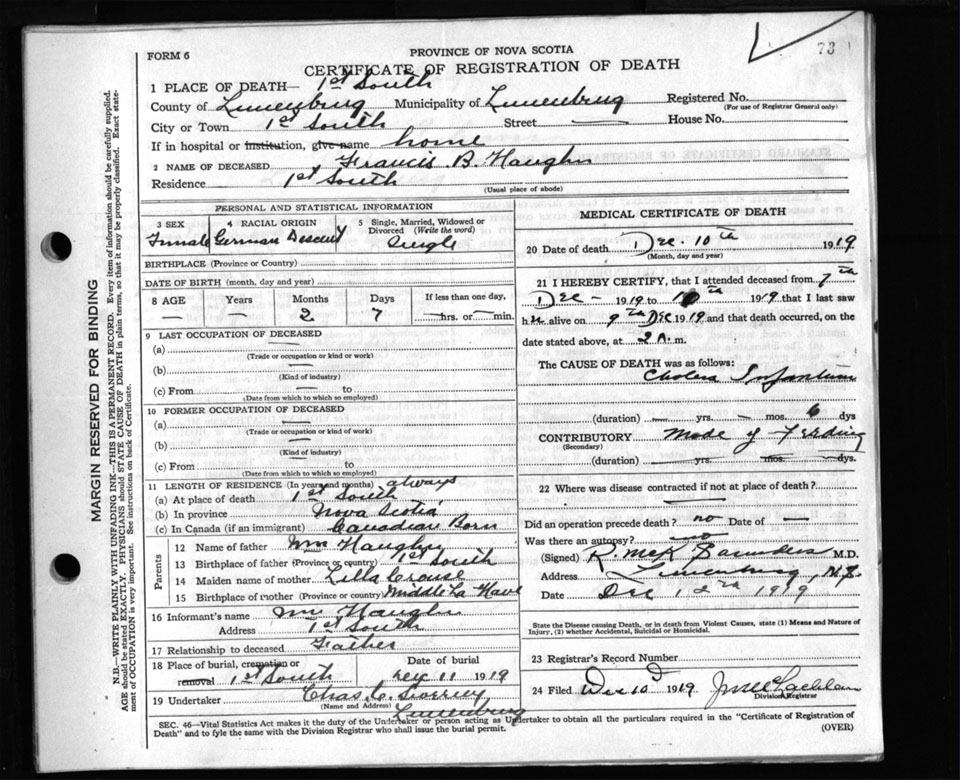 73
FORM 6
PROVINCE OF NOVA SCOTIA
CERTIFICATE OF REGISTRATION OF DEATH
1 PLACE OF DEATH— 1st South
County of Lunenburg Municipality of Lunenburg Registered No.
(For use of Registrar General only)
City or Town 1st South Street — House No.
If in hospital or institution, give name home
2 NAME OF DECEASED Francis B. Haughn
Residence 1st South
(Usual place of abode)
PERSONAL AND STATISTICAL INFORMATION
3 SEX 4 RACIAL ORIGIN 5 Single, Married, Widowed or Divorced (Write the word)
Female German Descent Single
BIRTHPLACE (Province or Country)
DATE OF BIRTH (month, day and year)
8 AGE Years Months Days If less than one day,
— — 2 7 —hrs. or —min.
9 LAST OCCUPATION OF DECEASED
(a) —
(Trade or occupation or kind or work)
(b) —
(Kind of industry)
(c) From — to
(Date from which to which so employed)
10 FORMER OCCUPATION OF DECEASED
(a) —
(Trade or occupation or kind or work)
(b) —
(Kind of industry)
(c) From to
(Date from which to which so employed)
11 LENGTH OF RESIDENCE (In years and months) always
(a) At place of death 1st South
(b) In province Nova Scotia
(c) In Canada (if an immigrant) Canadian Born
Parents
12 Name of father Wm Haughn
13 Birthplace of father (Province or country) 1st South
14 Maiden name of mother Lilla Crouse
15 Birthplace of mother (Province or country) Middle La Have
16 Informant's name Wm Haughn
Address 1st South
17 Relationship to deceased Father
18 Place of burial, cremation or removal 1st South Date of burial Dec 11 1919
19 Undertaker Chas. C.
(Name and Address) Lunenburg
MEDICAL CERTIFICATE OF DEATH
20 Date of death Dec. 10th 1919
(Month, day and year)
21 I HEREBY CERTIFY, that I attended deceased from 7th
Dec — 1919 to 10th 1919 that I last saw
her alive on 9th Dec 1919 and that death occurred, on the
date stated above, at 2 A. m.
The CAUSE OF DEATH was as follows:
Cholera Infantum
(duration) — yrs. — mos. 6 dys
CONTRIBUTORY Mode of Feeding
(Secondary)
(duration) yrs. mos. dys.
22 Where was disease contracted if not at place of death?
Did an operation precede death? no Date of —
Was there an autopsy? no
(Signed) R. McK Saunders M.D.
Address Lunenburg, N.S.
Date Dec 12th 1919
State the Disease causing Death, or in death from Violent Causes, state (1) Means and Nature of
Injury, (2) whether Accidental, Suicidal or Homicidal.
23 Registrar's Record Number
24 Filed Dec 10 1919 McLachlan
Division Registrar
SEC. 46—Vital Statistics Act makes it the duty of the Undertaker or person acting as Undertaker to obtain all the particulars required in the "Certificate of Registration of
Death" and to fyle the same with the Division Registrar who shall issue the burial permit.
(OVER)
MARGIN RESERVED FOR BINDING
N.B.—WRITE PLAINLY WITH UNFADING INK—THIS IS A PERMANENT RECORD. Every item of information should be carefully supplied.
AGE should be stated EXACTLY. PHYSICIANS should STATE CAUSE OF DEATH in plain terms, so that it may be properly classified. Exact state-
ment of OCCUPATION is very important. See instructions on back of Certificate.